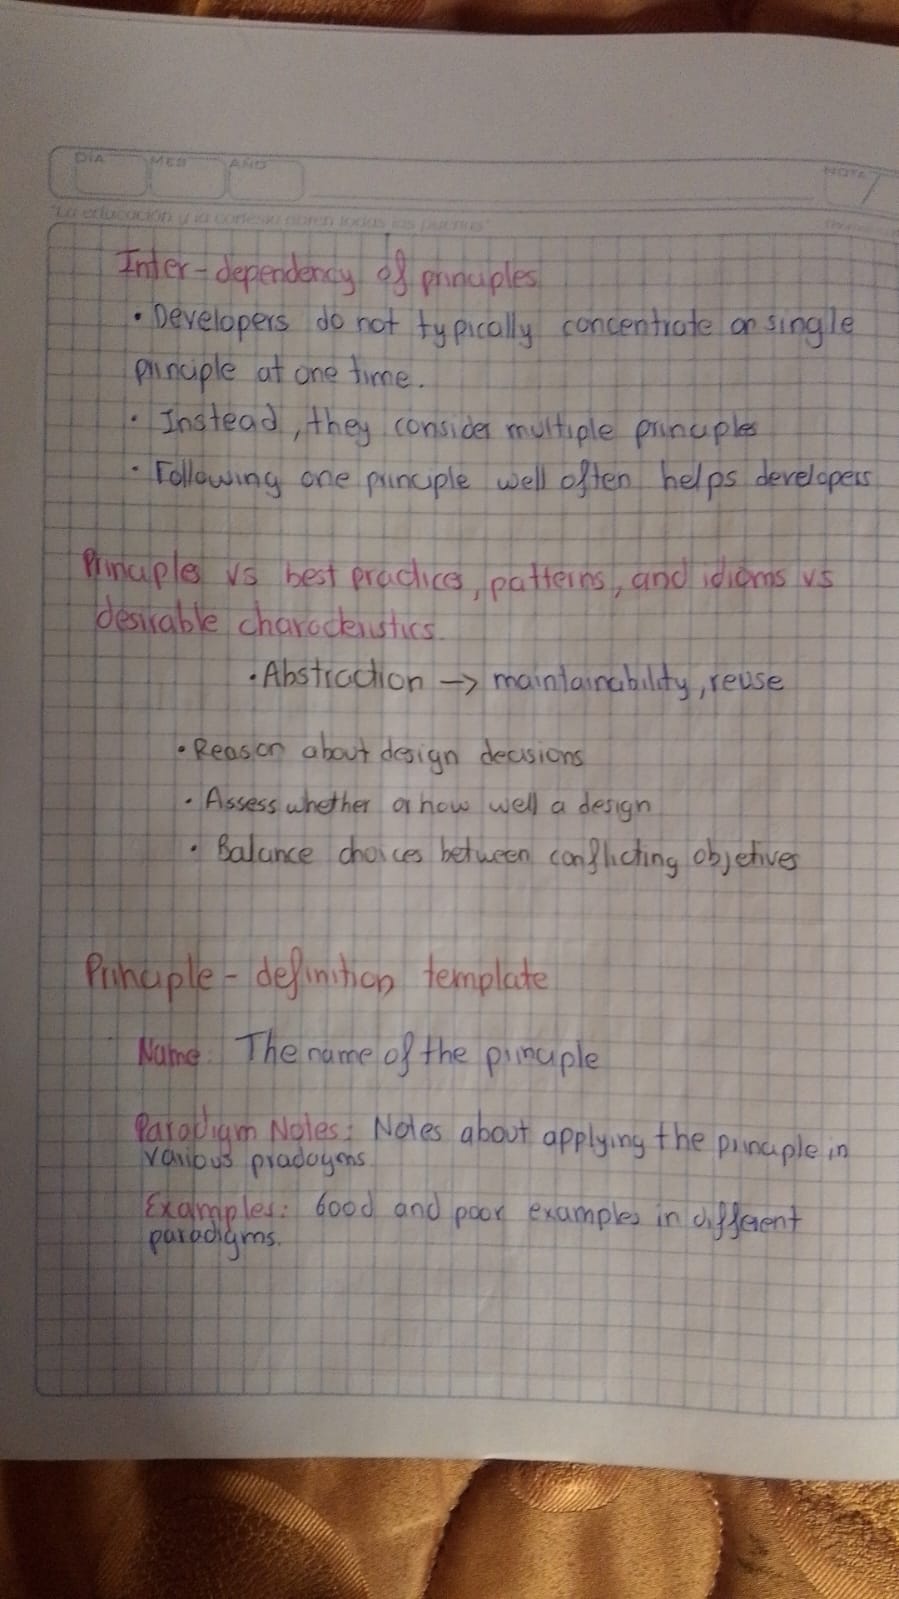 DIA MES AÑO NOTA
"La educación y la cortesía abren todas las puertas"
Inter-dependency of principles
• Developers do not typically concentrate on single
principle at one time.
• Instead, they consider multiple principles
• Following one principle well often helps developers
Principles vs best practices, patterns, and idioms vs
desirable characteristics.
• Abstraction -> maintainability, reuse
• Reason about design decisions
• Assess whether or how well a design
• Balance choices between conflicting objetives
Principle - definition template
Name: The name of the principle
Paradigm Notes: Notes about applying the principle in
various pradoyens
Examples: Good and poor examples in different
paradigms.